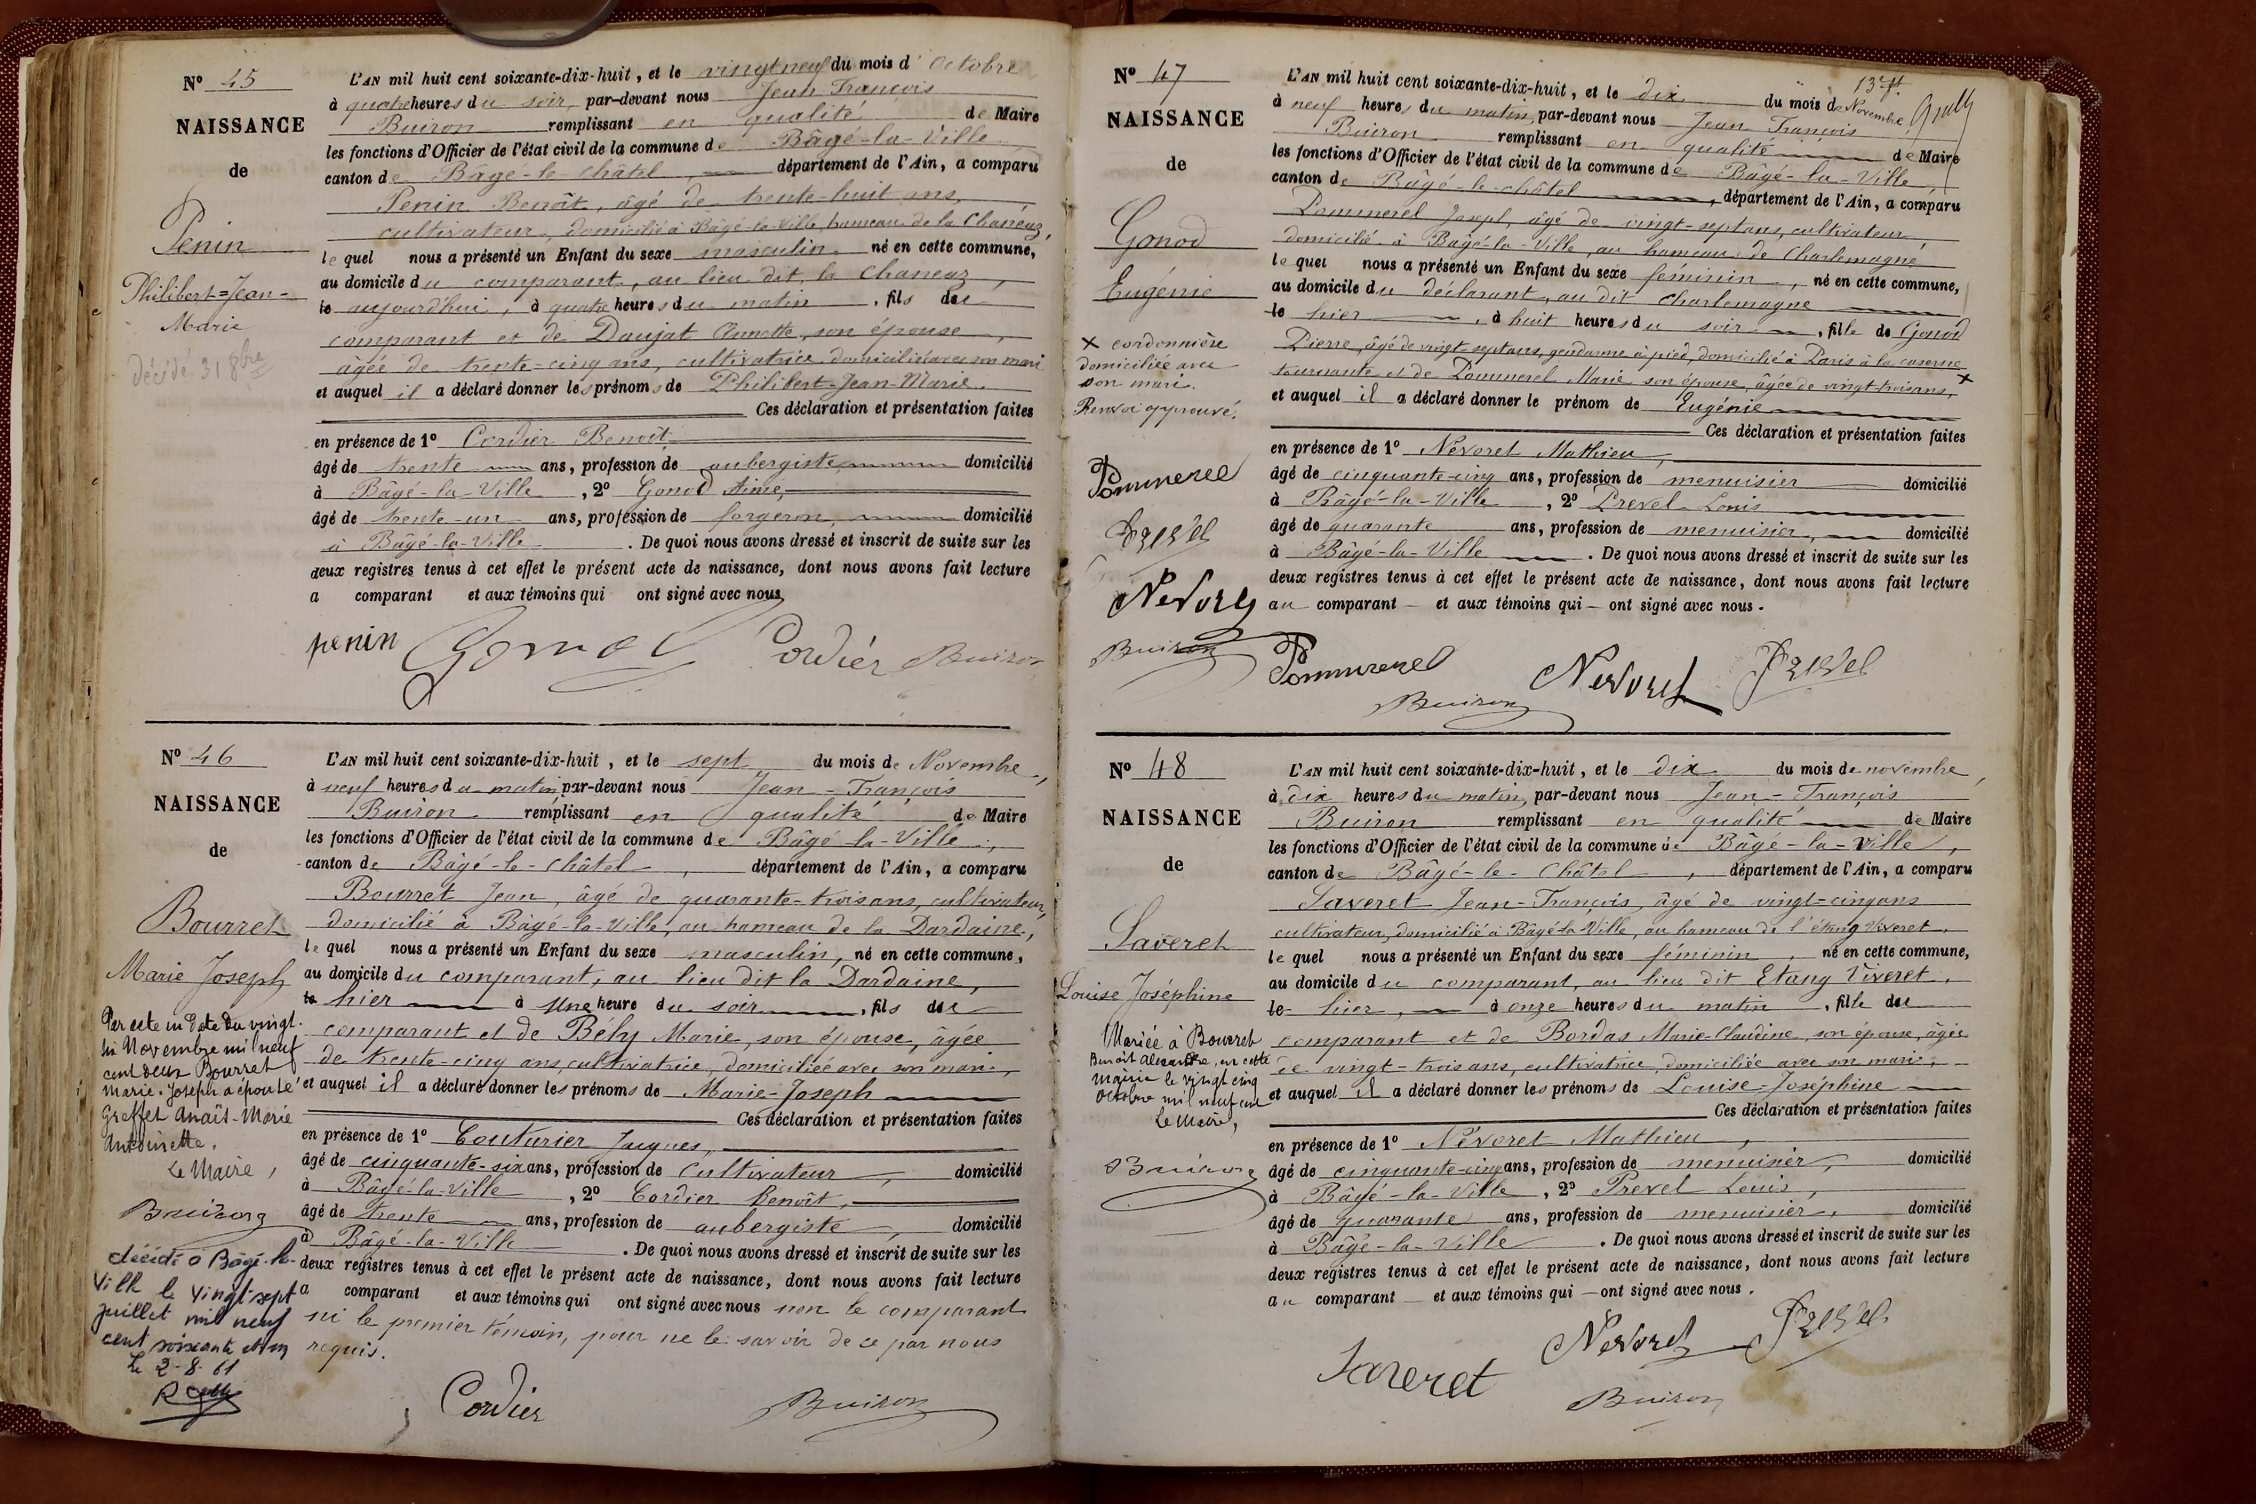 N° 45
NAISSANCE
de
Penin
Philibert-Jean-
Marie
décédé 31 8bre
L'AN mil huit cent soixante-dix-huit, et le vingt neuf du mois d'Octobre
à quatre heures du soir par-devant nous Jean François
Buiron remplissant en qualité de Maire
les fonctions d'Officier de l'état civil de la commune de Bâgé-la-Ville
canton de Bâgé-le-Châtel, département de l'Ain, a comparu
Penin Benoît, âgé de trente-huit ans,
cultivateur, domicilié à Bâgé-la-Ville, hameau de la Chanéaz,
lequel nous a présenté un Enfant du sexe masculin né en cette commune,
au domicile du comparant, au lieu dit la Chaneaz,
le aujourd'hui, à quatre heures du matin, fils du
comparant et de Daujat Annette, son épouse,
âgée de trente-cinq ans, cultivatrice domiciliée avec son mari
et auquel il a déclaré donner les prénoms de Philibert-Jean-Marie.
Ces déclaration et présentation faites
en présence de 1° Cordier Benoît
âgé de trente ans, profession de aubergiste domicilié
à Bâgé-la-Ville, 2° Gonod Aimé,
âgé de trente-un ans, profession de forgeron, domicilié
à Bâgé-la-Ville. De quoi nous avons dressé et inscrit de suite sur les
deux registres tenus à cet effet le présent acte de naissance, dont nous avons fait lecture
a comparant et aux témoins qui ont signé avec nous
penin Gonod Cordier Buiron
N° 46
NAISSANCE
de
Bourret
Marie Joseph
Par acte en date du vingt-
six Novembre mil neuf
cent deux Bourret
Marie-Joseph a épousé
Greffet Anaïs-Marie
Antoinette.
Le Maire,
Buiron
décédé à Bâgé-la-
Ville le vingt sept
juillet mil neuf
cent soixante et un
le 2-8-61
L'AN mil huit cent soixante-dix-huit, et le sept du mois de Novembre,
à neuf heures du matin par-devant nous Jean-François
Buiron remplissant en qualité de Maire
les fonctions d'Officier de l'état civil de la commune de Bâgé-la-Ville,
canton de Bâgé-le-Châtel, département de l'Ain, a comparu
Bourret Jean, âgé de quarante-trois ans, cultivateur,
domicilié à Bâgé-la-Ville, au hameau de la Dardaine,
lequel nous a présenté un Enfant du sexe masculin, né en cette commune,
au domicile du comparant, au lieu dit la Dardaine,
le hier à une heure du soir, fils du
comparant et de Bély Marie, son épouse, âgée
de trente-cinq ans, cultivatrice, domiciliée avec son mari,
et auquel il a déclaré donner les prénoms de Marie-Joseph
Ces déclaration et présentation faites
en présence de 1° Couturier Jacques,
âgé de cinquante-six ans, profession de cultivateur, domicilié
à Bâgé-la-Ville, 2° Cordier Benoît,
âgé de trente ans, profession de aubergiste, domicilié
à Bâgé-la-Ville. De quoi nous avons dressé et inscrit de suite sur les
deux registres tenus à cet effet le présent acte de naissance, dont nous avons fait lecture
a comparant et aux témoins qui ont signé avec nous non le comparant
ni le premier témoin, pour ne le savoir de ce par nous
requis.
Cordier Buiron
N° 47
NAISSANCE
de
Gonod
Eugénie
x cordonnière
domiciliée avec
son mari.
Renvoi approuvé.
Pommerel
Prevel
Nevoret
Buiron
L'AN mil huit cent soixante-dix-huit, et le dix du mois de Novembre,
à neuf heures du matin, par-devant nous Jean François
Buiron remplissant en qualité de Maire
les fonctions d'Officier de l'état civil de la commune de Bâgé-la-Ville,
canton de Bâgé-le-châtel, département de l'Ain, a comparu
Pommerel Joseph, âgé de vingt-sept ans, cultivateur
domicilié à Bâgé-la-Ville, au hameau de Charlemagne,
lequel nous a présenté un Enfant du sexe féminin, né en cette commune,
au domicile du déclarant, au dit Charlemagne
le hier, à huit heures du soir, fille de Gonod
Pierre, âgé de vingt-sept ans, gendarme à pied, domicilié à Paris à la caserne
tournante et de Pommerel Marie son épouse, âgée de vingt-trois ans, x
et auquel il a déclaré donner le prénom de Eugénie
Ces déclaration et présentation faites
en présence de 1° Névoret Mathieu,
âgé de cinquante-cinq ans, profession de menuisier domicilié
à Bâgé-la-Ville, 2° Prevel Louis
âgé de quarante ans, profession de menuisier, domicilié
à Bâgé-la-Ville. De quoi nous avons dressé et inscrit de suite sur les
deux registres tenus à cet effet le présent acte de naissance, dont nous avons fait lecture
au comparant et aux témoins qui ont signé avec nous.
Pommerel Nevoret Prevel
Buiron
N° 48
NAISSANCE
de
Saveret
Louise Joséphine
Mariée à Bourret
Benoît Alexandre, en cette
mairie le vingt cinq
octobre mil neuf cent
Le Maire,
Buiron
L'AN mil huit cent soixante-dix-huit, et le dix du mois de novembre,
à dix heures du matin, par-devant nous Jean-François
Buiron remplissant en qualité de Maire
les fonctions d'Officier de l'état civil de la commune de Bâgé-la-Ville,
canton de Bâgé-le-Châtel, département de l'Ain, a comparu
Saveret Jean-François, âgé de vingt-cinq ans
cultivateur, domicilié à Bâgé-la-Ville, au hameau de l'étang Viveret,
lequel nous a présenté un Enfant du sexe féminin, né en cette commune,
au domicile du comparant, au lieu dit Etang Viveret,
le hier, à onze heures du matin, fille du
comparant et de Bordas Marie-Claudine, son épouse, âgée
de vingt-trois ans, cultivatrice, domiciliée avec son mari,
et auquel il a déclaré donner les prénoms de Louise-Joséphine
Ces déclaration et présentation faites
en présence de 1° Névoret Mathieu,
âgé de cinquante-cinq ans, profession de menuisier, domicilié
à Bâgé-la-Ville, 2° Prevel Louis,
âgé de quarante ans, profession de menuisier, domicilié
à Bâgé-la-Ville. De quoi nous avons dressé et inscrit de suite sur les
deux registres tenus à cet effet le présent acte de naissance, dont nous avons fait lecture
au comparant et aux témoins qui ont signé avec nous.
Saveret Nevoret Prevel
Buiron